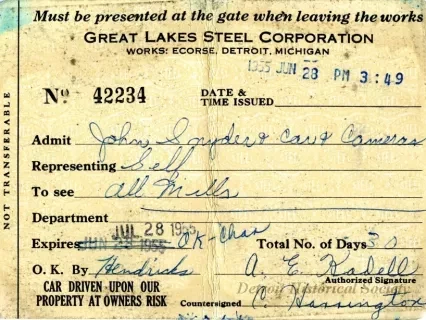 Must be presented at the gate when leaving the works
GREAT LAKES STEEL CORPORATION
WORKS: ECORSE, DETROIT, MICHIGAN
1955 JUN 28 PM 3:49
No 42234 DATE & TIME ISSUED
NOT TRANSFERABLE
Admit John Snyder & Car & Cameras
Representing Self
To see All Mills
Department
JUL 28 1955
Expires JUN 28 1955 OK Chas Total No. of Days 30
O. K. By Hendricks A. E. Kadell
Authorized Signature
CAR DRIVEN UPON OUR
PROPERTY AT OWNERS RISK
Detroit Historical Society
Countersigned C. Harrington